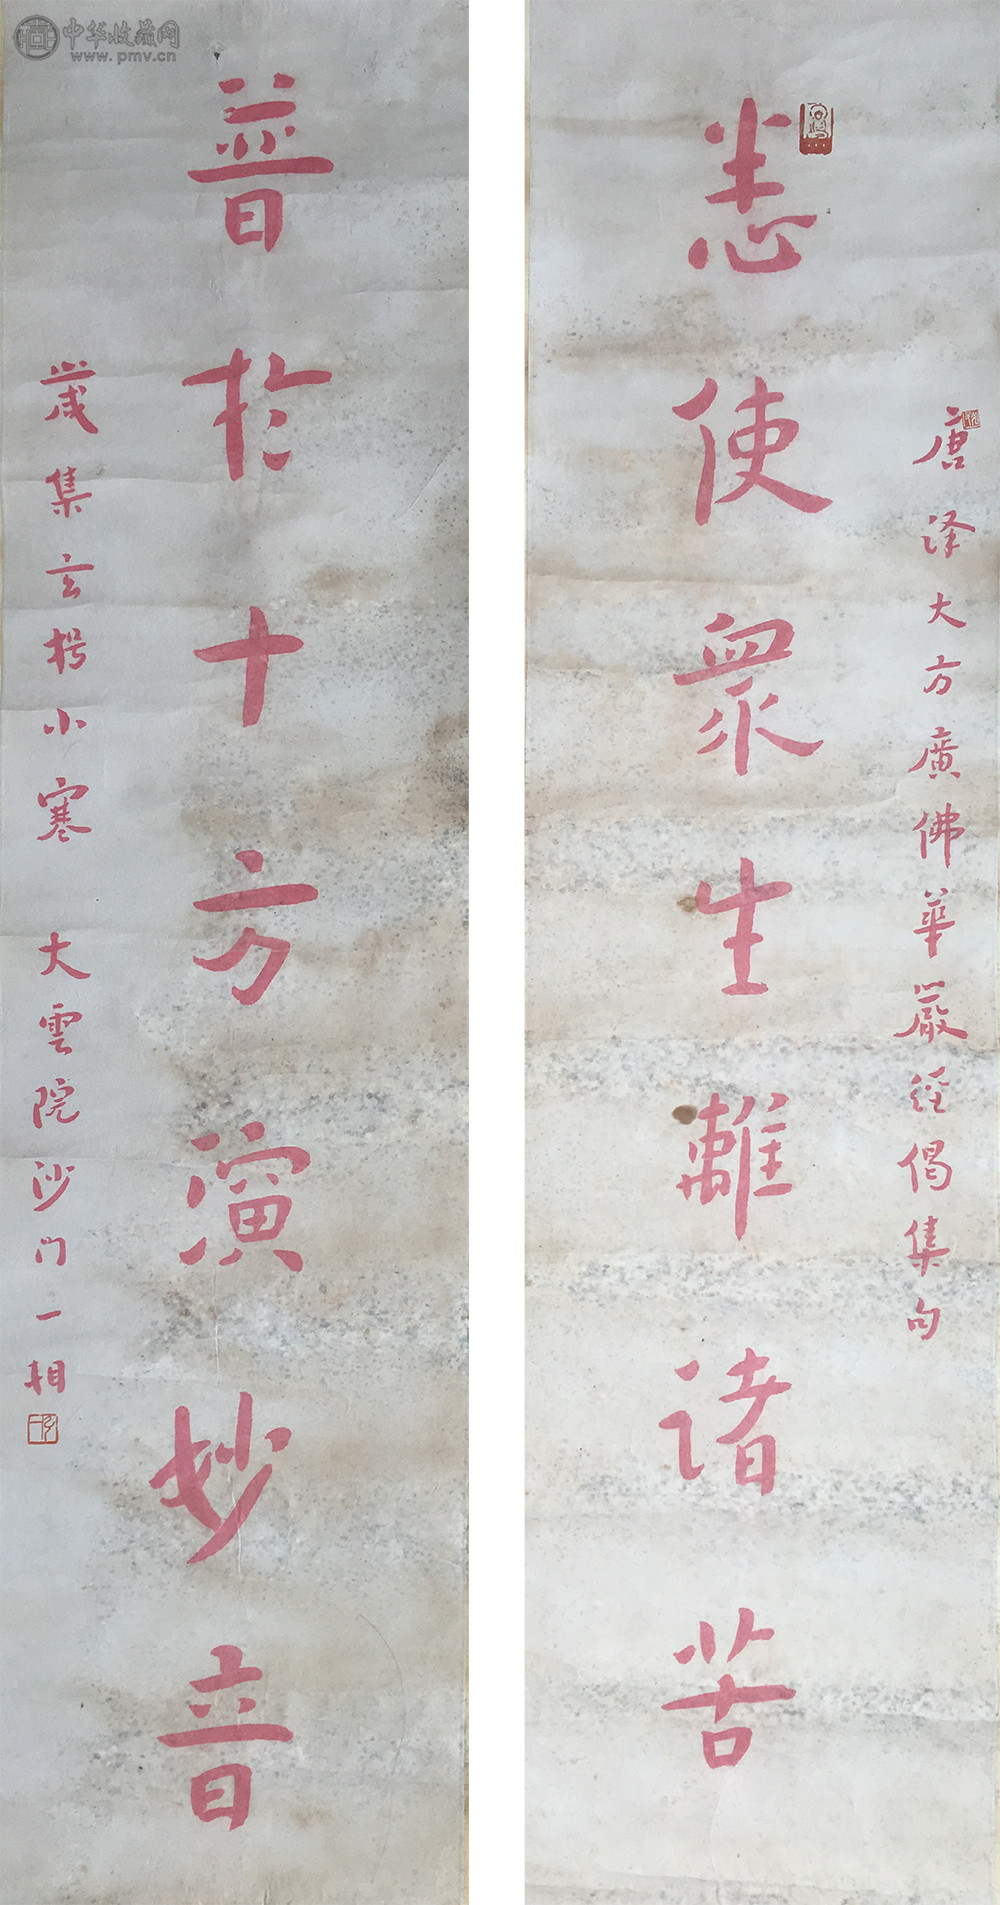 中华收藏网
www.pmv.cn
唐译大方廣佛華嚴经偈集句
悉使衆生離诸苦
普於十方演妙音
歲集玄枵小寒 大雲院沙门一相